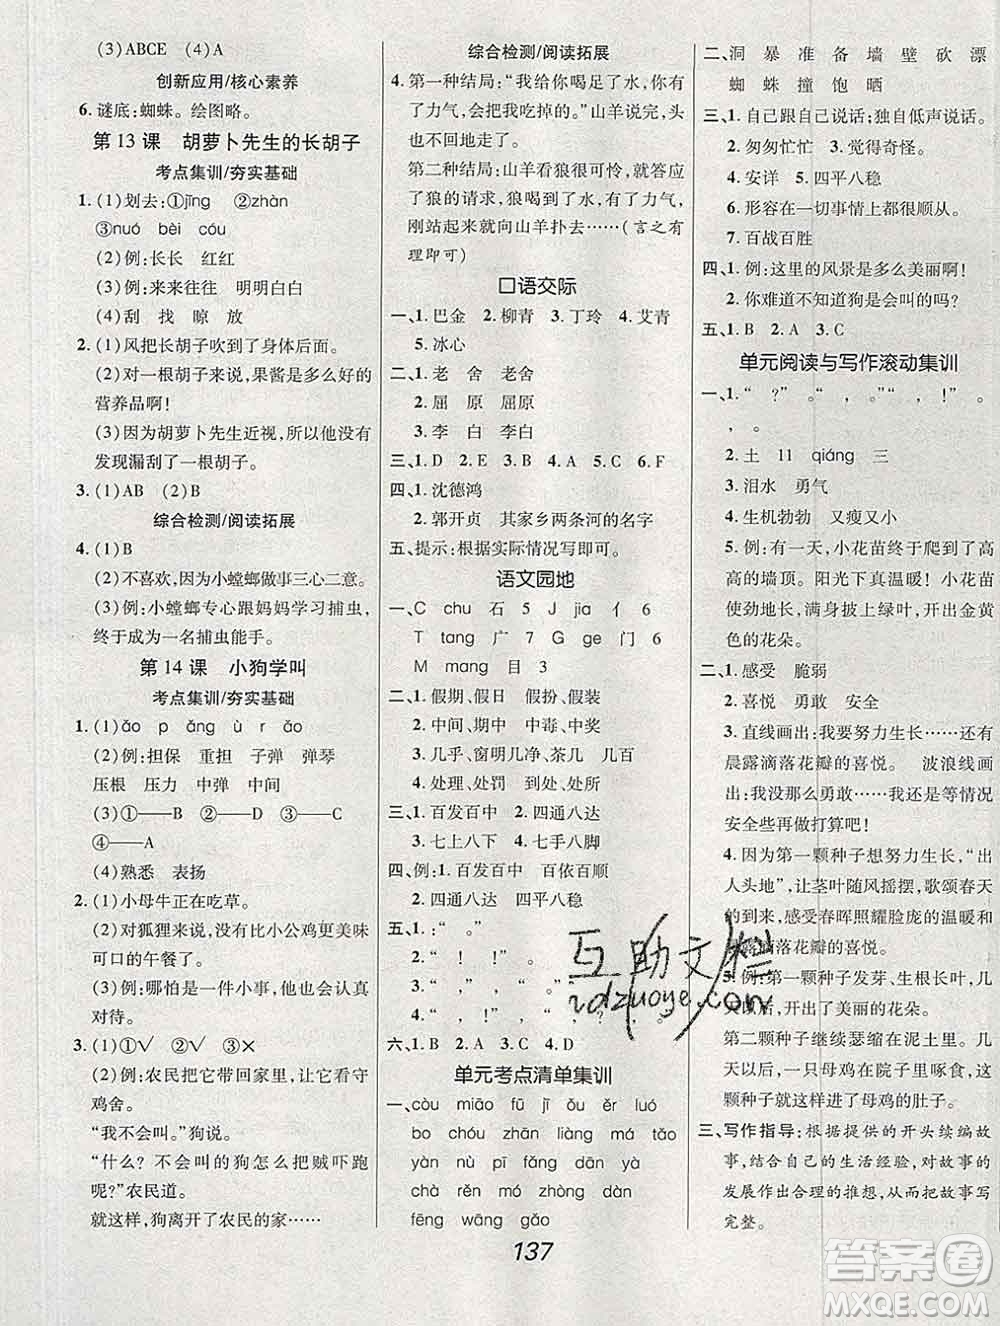 (3)ABCE (4)A
创新应用/核心素养
6. 谜底:蜘蛛。绘图略。
第 13 课 胡萝卜先生的长胡子
考点集训/夯实基础
1. (1)划去:①jīng ②zhàn
③nuó bèi cóu
(2)例:长长 红红
(3)例:来来往往 明明白白
(4)刮 找 晾 放
2. (1)风把长胡子吹到了身体后面。
(2)对一根胡子来说,果酱是多么好的
营养品啊!
(3)因为胡萝卜先生近视,所以没有
发现漏刮了一根胡子。
3. (1)AB (2)B
综合检测/阅读拓展
4. (1)B
(2)不喜欢,因为小螳螂做事三心二意。
(3)例:小螳螂专心跟妈妈学习捕虫,
终于成为一名捕虫能手。
第 14 课 小狗学叫
考点集训/夯实基础
1. (1)ǎo p ǎng ù r áo
(2)例:担保 重担 子弹 弹琴
压根 压力 中弹 弹簧
(3)①——D ②——B ③——C
④——A
(4)熟悉 表扬
2. (1)小母牛正在吃草。
(2)对狐狸来说,没有比小公鸡更美味
可口的午餐了。
(3)例:哪怕是一件小事,他也会认真
对待。
3. (1)①√ ②√ ③×
(2)例:农民把它带回家里,让它看守
鸡舍。
“我不会叫。”狗说。
“什么?不会叫的狗怎么把贼吓跑
呢?”农民道。
就这样,狗离开了农民的家……
综合检测/阅读拓展
4. 第一种结局:“我给你喝足了水,你有
了力气,会把我吃掉的。”山羊说完,头
也不回地走了。
第二种结局:山羊看狼很可怜,就答应
了狼的请求,狼喝足了水,有了力气,
刚站起来就向山羊扑去……(言之有
理即可)
口语交际
一、1. 巴金 2. 柳青 3. 丁玲 4. 艾青
5. 冰心
二、1. 老 舍 老舍
2. 屈 原 屈原
3. 李 白 李白
三、1. D 2. E 3. B 4. A 5. C 6. F
四、1. 沈德鸿
2. 郭开贞 其家乡两条河的名字
五、提示:根据实际情况写即可。
语文园地
一、C chu 石 5 J jia 亻 6
T tang 广 7 G ge 门 6
M mang 目 3
二、1. 假期、假日 假扮、假装
2. 中间、期中 中毒、中奖
3. 几乎、窗明几净、茶几 几百
4. 处理、处罚 到处、处所
三、1. 百发百中 2. 四通八达
3. 七上八下 4. 七手八脚
四、例:1. 百发百中 百依百顺
2. 四通八达 四平八稳
五、1. :“ 。”
2. “ , ! ” “ 。”
3. “ ,” “ 。”
4. “ , !” “ ? , 。”
六、1. B 2. A 3. C 4. D
单元考点清单集训
一、còu miāo fū jī ǒu ěr luó
bo chóu zhān liàng má tǎo
yàn nù pī fǎng dān yà
chà rěn mó zhòng dàn
fēng wāng gǎo
二、洞 暴 准 备 墙 壁 砍 漂
蜘 蛛 撞 饱 晒
三、1. 自己跟自己说话;独自低声说话。
2. 匆匆忙忙 3. 觉得奇怪。
4. 安详 5. 四平八稳
6. 形容在一切事情上都很顺利。
7. 百战百胜
四、1. 例:这里的风景是多么美丽啊!
2. 你难道不知道狗是会叫的吗?
五、1. B 2. A 3. C
单元阅读与写作滚动集训
一、1. “ ?” “ , 。” “ !” 。
, 。
2. 土 11 qiáng 三
3. 泪水 勇气
4. 生机勃勃 又瘦又小
5. 例:有一天,小花苗终于爬到了高
高的墙顶。阳光下真温暖!小花苗
使劲地生长,满身披上绿叶,开出金黄
色的花朵。
二、1. 感受 脆弱
2. 喜悦 勇敢 安全
3. 直线画出:我要努力生长……以及
晨露滴落花瓣的喜悦。 波浪线画
出:我没那么勇敢……我还是等情况
安全些再做打算吧!
4. 因为第一颗种子想努力生长,“出
人头地”,让茎叶随风摇摆,歌颂春天
的到来,感受春晖照耀脸庞的温暖和
晨露滴落花瓣的喜悦。
5. 例:第一颗种子发芽、生根长叶,几
天以后,开出了美丽的花朵。
第二颗种子继续瑟缩在泥土里,几
天以后,一只母鸡在院子里啄食,这
颗种子就这样进了母鸡的肚子。
三、写作指导:根据提供的开头续编故
事,结合自己的生活经验,对故事的
发展作出合理的推想,从而把故事写
完整。
137
互助文栏
答案圈
MXQE.COM